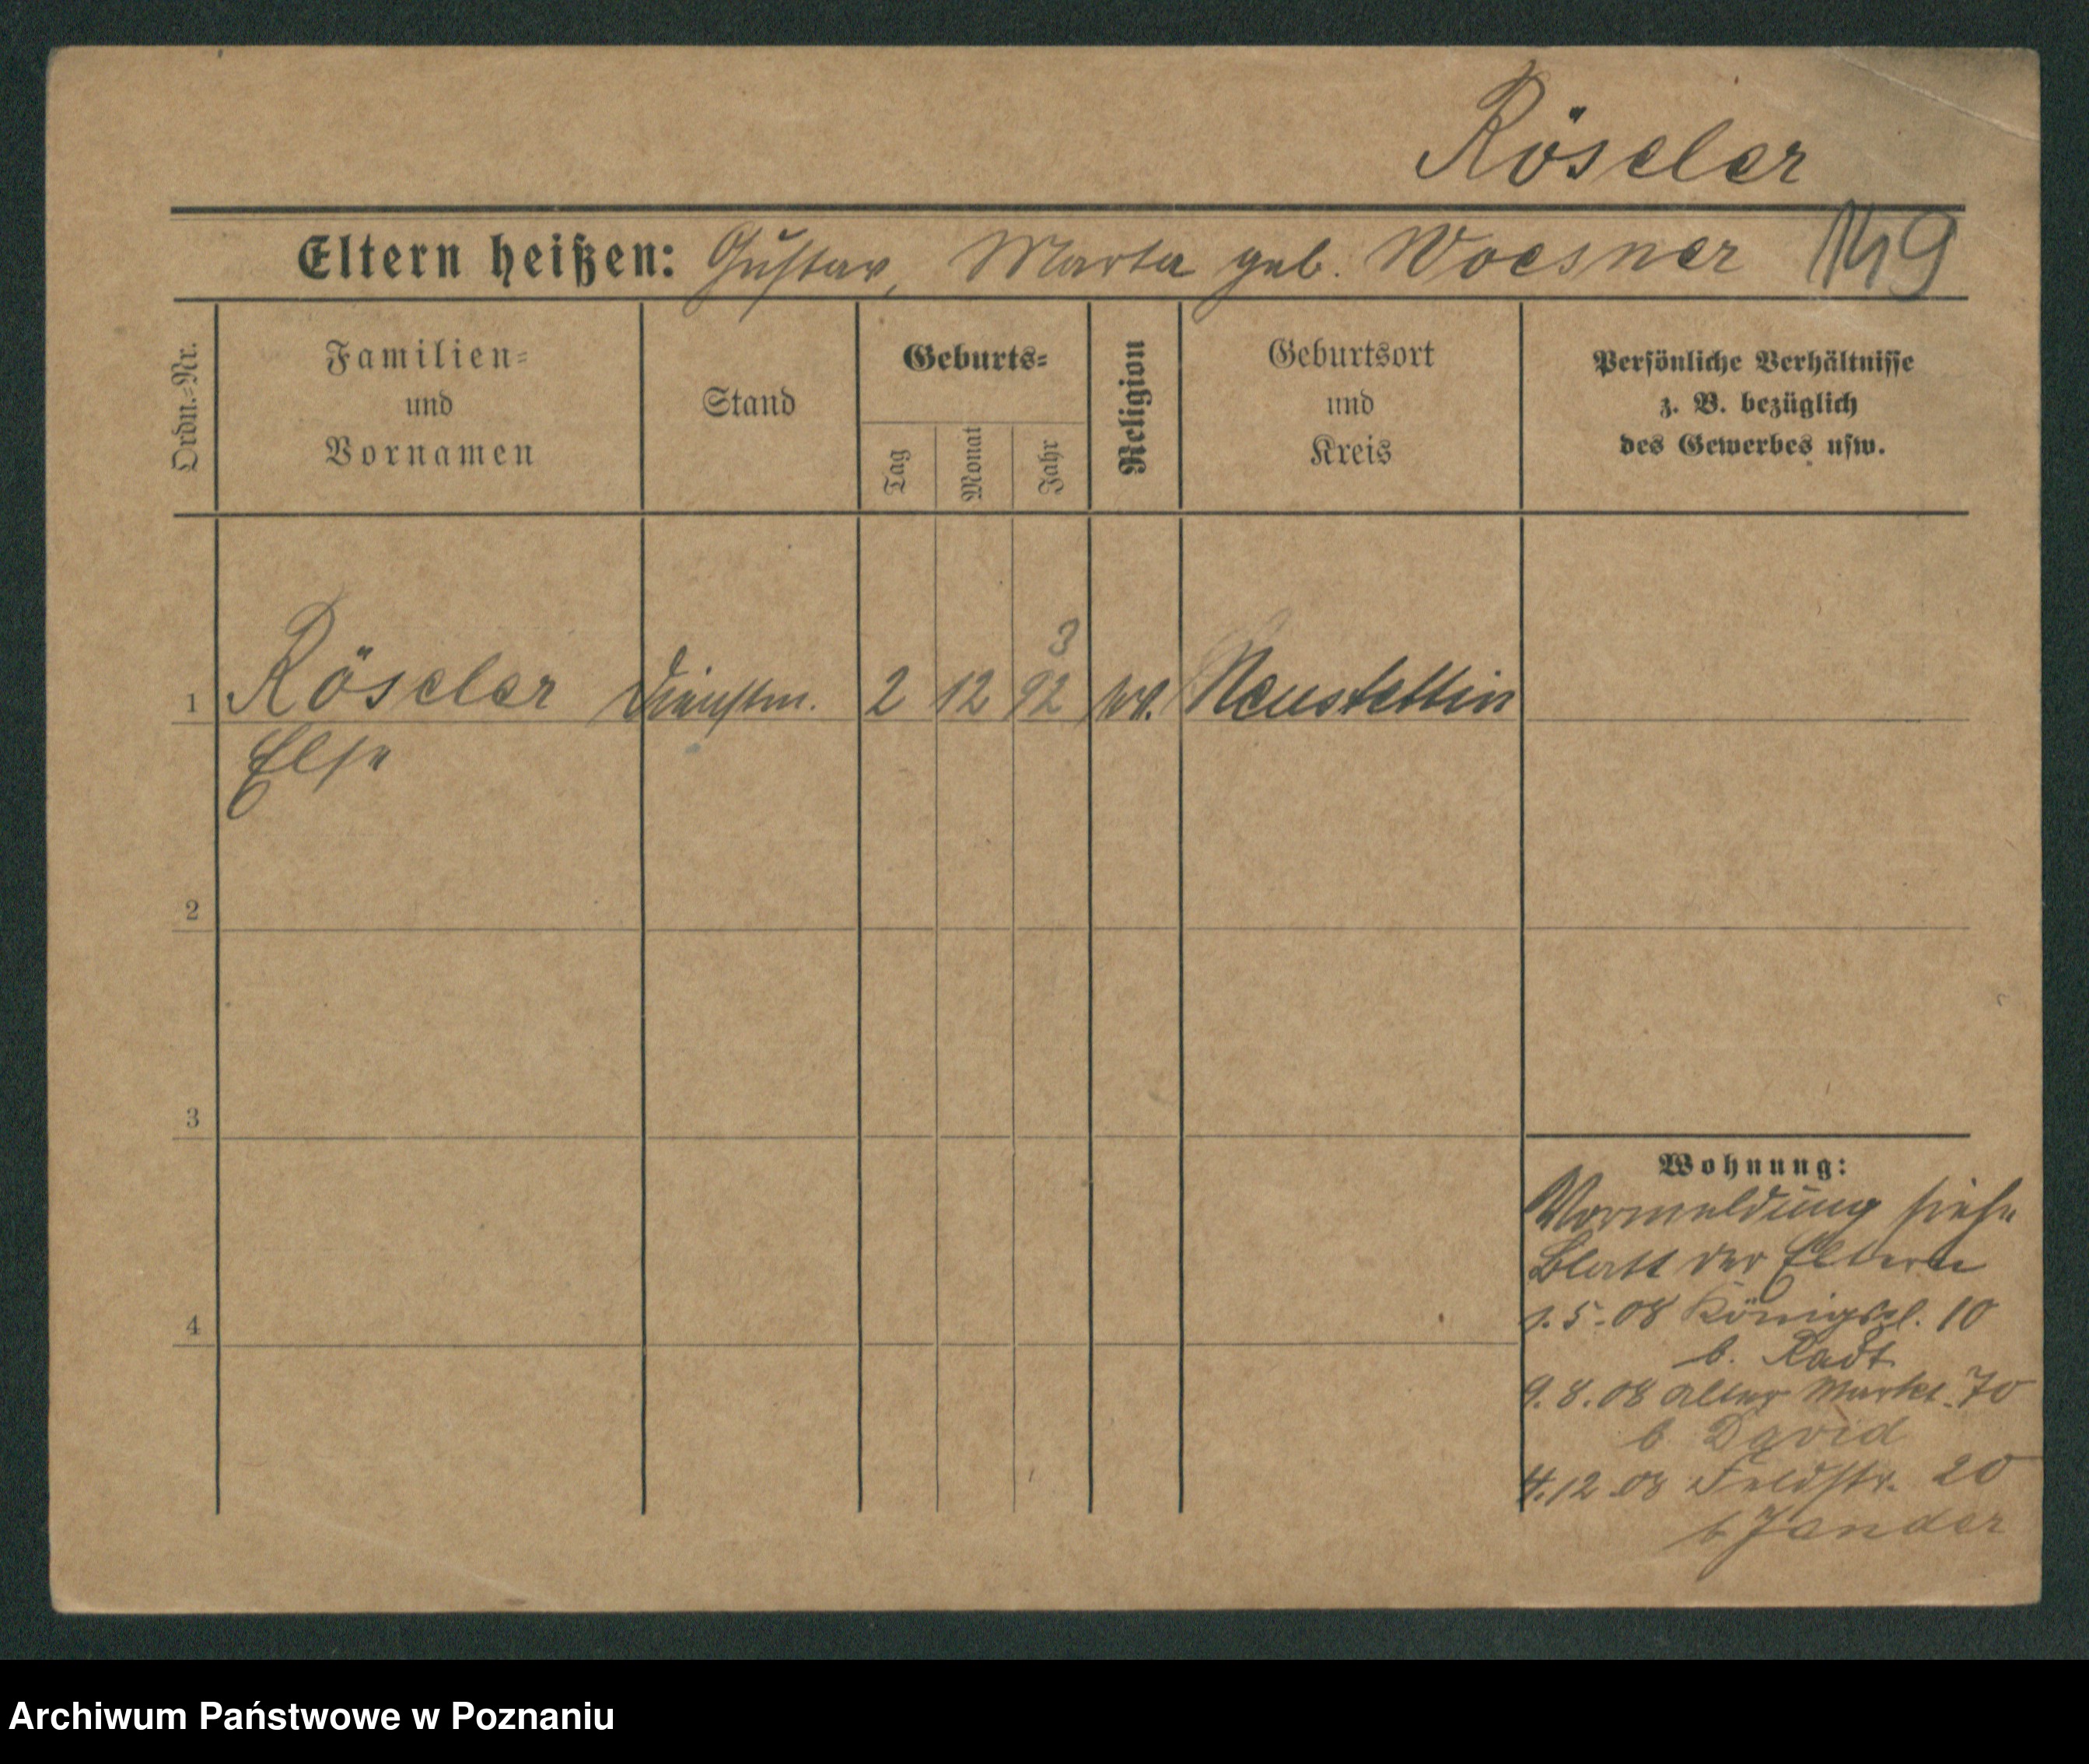 Röseler
Eltern heißen: Gustav, Marta geb. Woesner 149
Ordn.=Nr.
Familien=
und
Vornamen
Stand
Geburts=
Tag
Monat
Jahr
Religion
Geburtsort
und
Kreis
Persönliche Verhältnisse
z. B. bezüglich
des Gewerbes usw.
3
1 Röseler Dienstm. 2 12 92 Neustettin
Else
2
3
4
Wohnung:
Vormeldung siehe
Blatt der Eltern
1.5.08 Königspl. 10
b. Radt
9.8.08 Alter Markt 70
b David
4.12.08 Feldstr. 20
b Jander
Archiwum Państwowe w Poznaniu